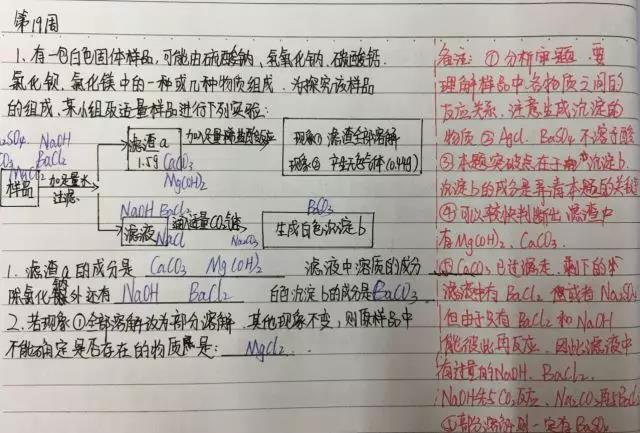 第19周
1. 有一包白色固体样品,可能由硫酸钠、氢氧化钠、碳酸钙、
氯化钡、氯化镁中的一种或几种物质组成.为探究该样品
的组成,某小组取适量样品进行下列实验:
NaOH
BaCl2
MgCl2
样品
加足量水
过滤
滤渣a
1.5g CaCO3
Mg(OH)2
加足量稀盐酸
现象① 滤渣全部溶解
现象② 产生无色气体(0.44g)
NaOH BaCl2
滤液 NaCl
通过量CO2气体
Na2CO3
BaCO3
生成白色沉淀b
1. 滤渣a的成分是 CaCO3 Mg(OH)2 滤液中溶质的成分
除氯化钠外还有 NaOH BaCl2 白色沉淀b的成分是BaCO3
2. 若现象①全部溶解改为部分溶解.其他现象不变,则原样品中
不能确定是否存在的物质是: MgCl2
备注: ① 分析审题.要
理解样品中各物质之间的
反应关系.注意生成沉淀的
物质 ② AgCl BaSO4 不溶于酸
③ 本题突破点在于沉淀b.
沉淀b的成分是弄清本题的关键
④ 可以较快判断出滤渣中
有Mg(OH)2、CaCO3
⑤ CaCO3 已过滤走.剩下的
滤液中有 BaCl2 或Na2SO4
但由于只有 BaCl2 和 NaOH
能彼此再反应.因此滤液中
有过量的NaOH、BaCl2
NaOH先与CO2反应、Na2CO3再与BaCl2
部分溶解则一定有BaSO4